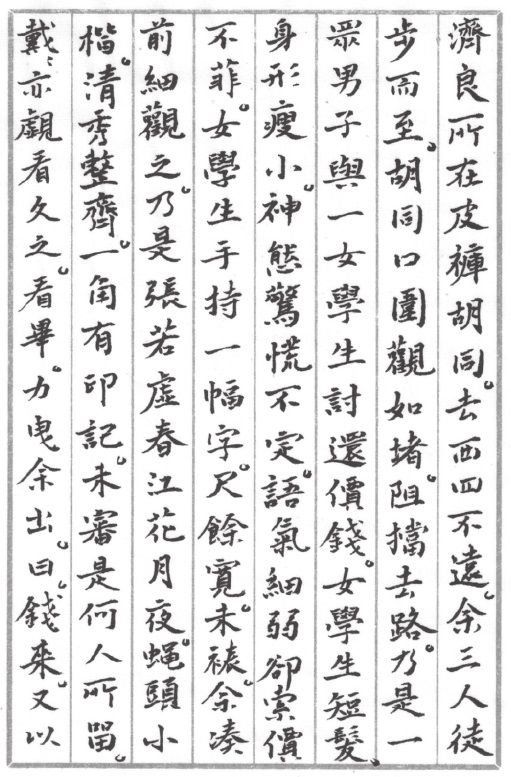 濟良所在皮褲胡同。去西四不遠。余三人徒
步而至。胡同口圍觀如堵。阻擋去路。乃是一
眾男子與一女學生討還價錢。女學生短髮。
身形瘦小。神態驚慌不定。語氣細弱。卻索價
不菲。女學生手持一幅字。尺餘寬。未裱。余湊
前細觀之。乃是張若虛春江花月夜。蠅頭小
楷。清秀整齊。一角有印記。未審是何人所留。
戴〻亦觀看久之。看畢。力曳余出。曰。錢來。又以